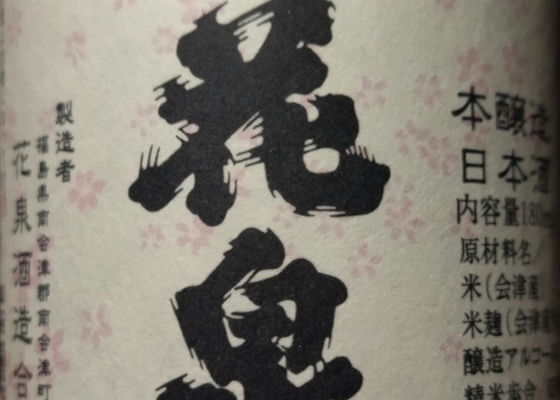 花泉
本醸造
日本酒
内容量180m
原材料名/
米(会津産
米麹(会津産
醸造アルコー
精米歩合
製造者
福島県南会津郡南会津町
花泉酒造合